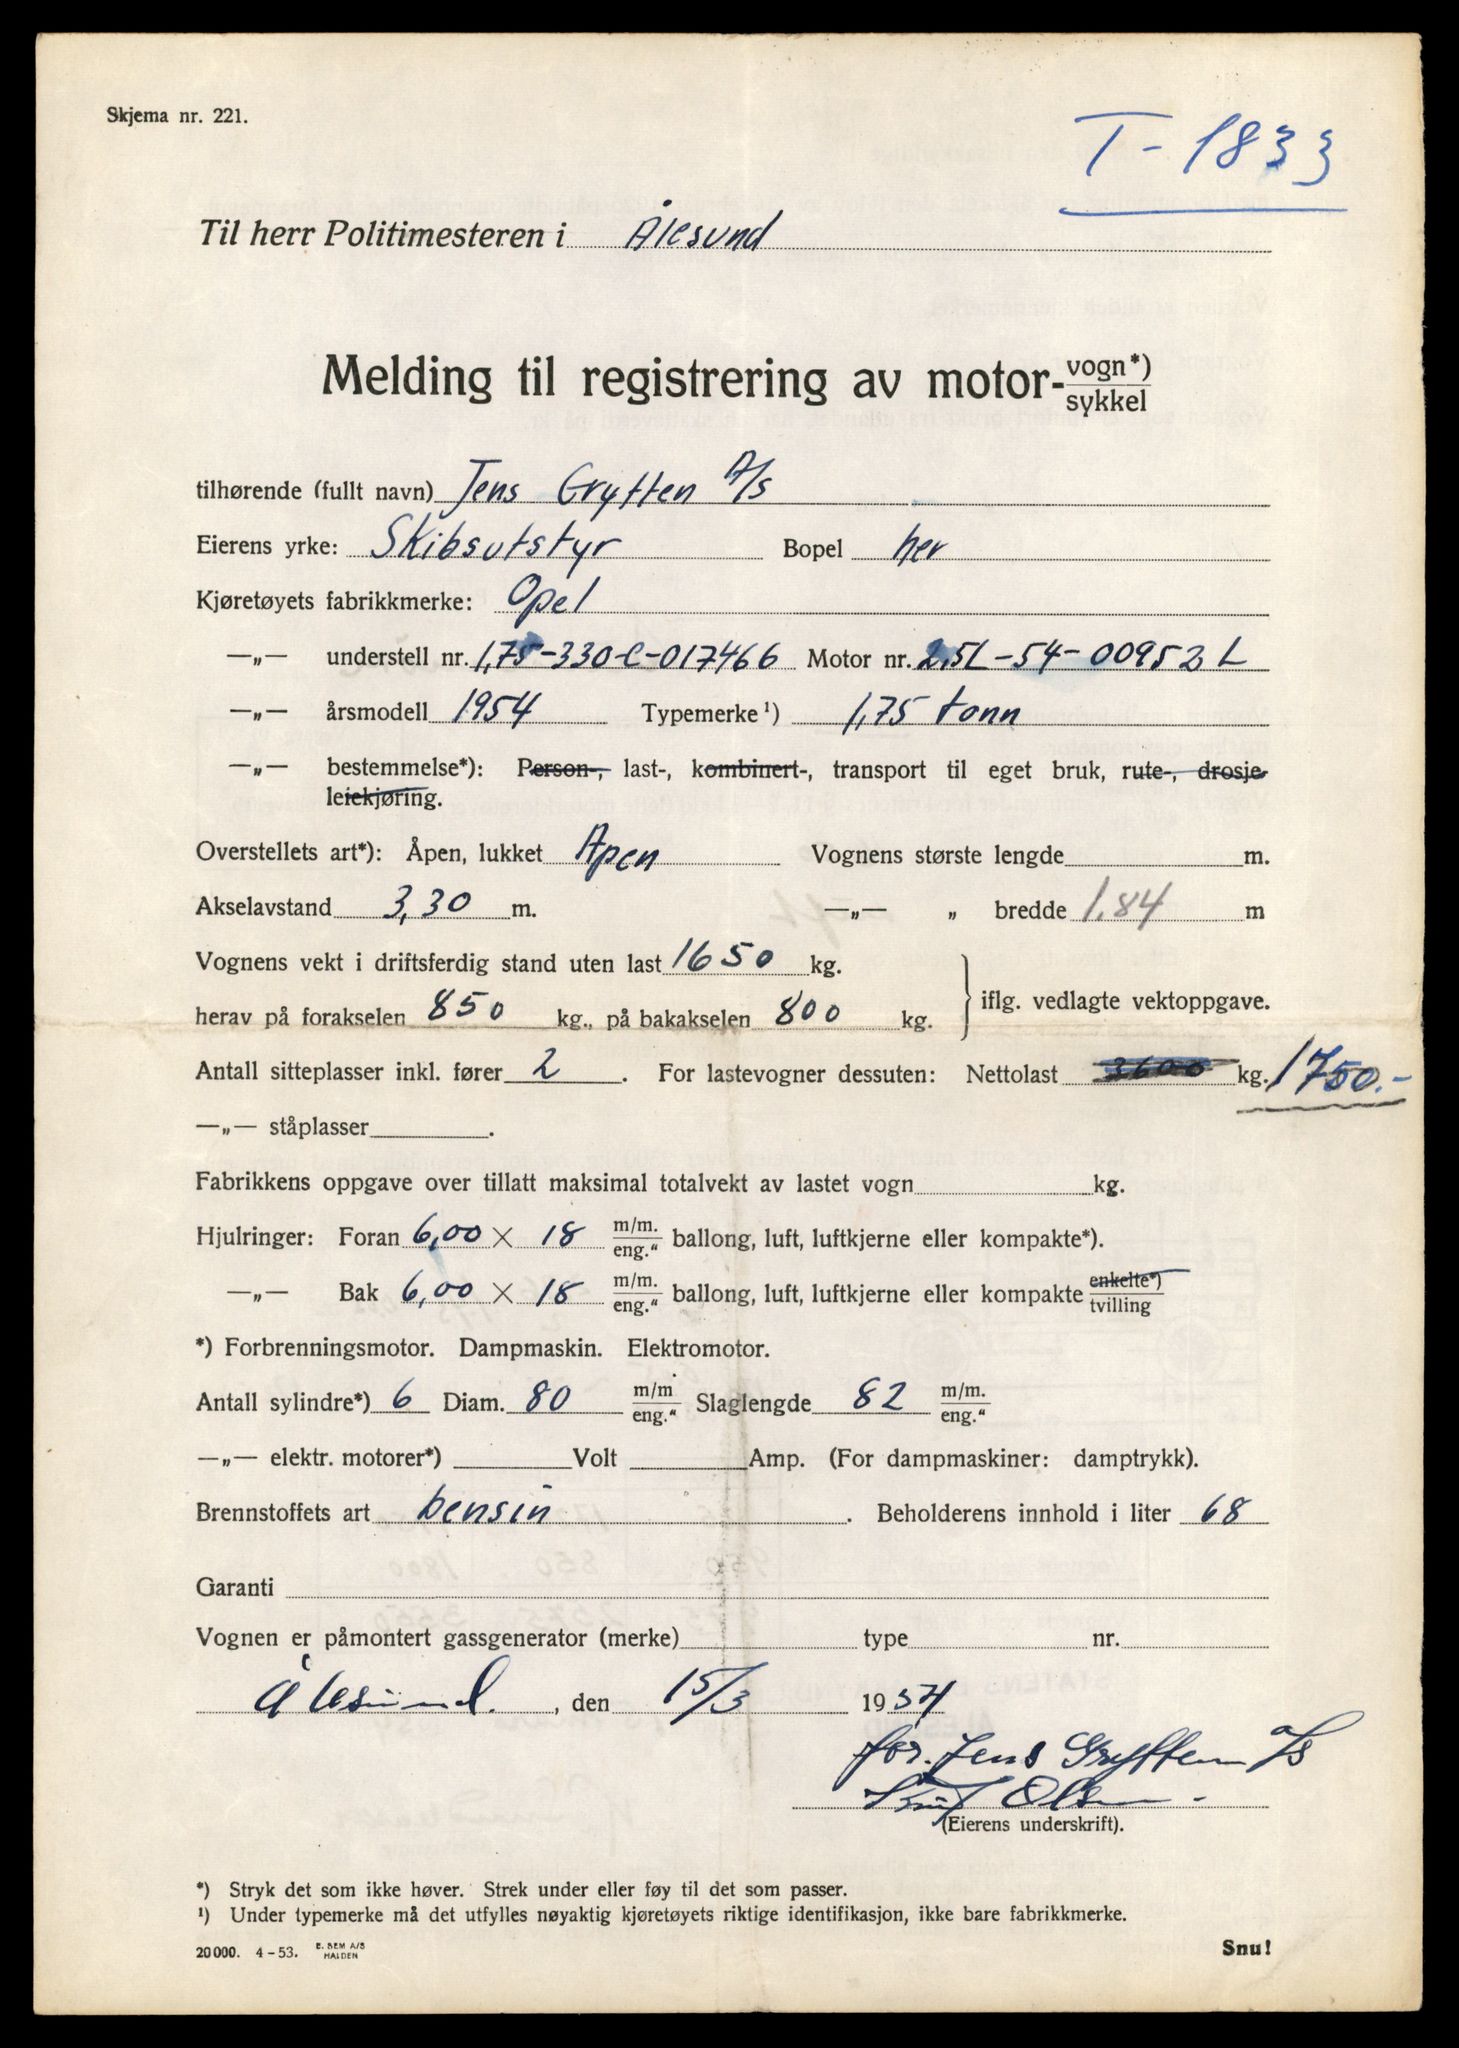 Skjema nr. 221.
T - 1833
Til herr Politimesteren i Ålesund
Melding til registrering av motor- vogn*) sykkel
tilhørende (fullt navn) Jens Grytten A/s
Eierens yrke: Skibsutstyr Bopel her
Kjøretøyets fabrikkmerke: Opel
—„— understell nr. 1,75-330-C-017466 Motor nr. 2,5L-54-00953 L
—„— årsmodell 1954 Typemerke¹) 1,75 tonn
—„— bestemmelse*): Person-, last-, kombinert-, transport til eget bruk, rute-, drosje
leiekjøring.
Overstellets art*): Åpen, lukket Åpen Vognens største lengde m.
Akselavstand 3,30 m. —„— „ bredde 1.84 m
Vognens vekt i driftsferdig stand uten last 1650 kg.
herav på forakselen 850 kg., på bakakselen 800 kg. iflg. vedlagte vektoppgave.
Antall sitteplasser inkl. fører 2 . For lastevogner dessuten: Nettolast 3600 kg. 1750.-
—„— ståplasser .
Fabrikkens oppgave over tillatt maksimal totalvekt av lastet vogn kg.
Hjulringer: Foran 6,00 × 18 m/m. eng.“ ballong, luft, luftkjerne eller kompakte*).
—„— Bak 6,00 × 18 m/m. eng.“ ballong, luft, luftkjerne eller kompakte enkelte*) tvilling
*) Forbrenningsmotor. Dampmaskin. Elektromotor.
Antall sylindre*) 6 Diam. 80 m/m eng.“ Slaglengde 82 m/m. eng.“
—„— elektr. motorer*) Volt Amp. (For dampmaskiner: damptrykk).
Brennstoffets art bensin . Beholderens innhold i liter 68
Garanti
Vognen er påmontert gassgenerator (merke) type nr.
Ålesund. , den 15/3 1954
for. Jens Grytten a/s
Olsen
(Eierens underskrift).
*) Stryk det som ikke høver. Strek under eller føy til det som passer.
¹) Under typemerke må det utfylles nøyaktig kjøretøyets riktige identifikasjon, ikke bare fabrikkmerke.
20000. 4 - 53. E. SEM A/S HALDEN
Snu!